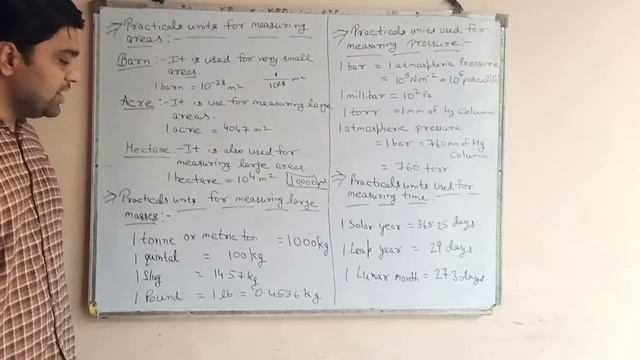 ⇒ Practicals units for measuring
areas:-
Barn :- It is used for very small
areas
1 barn = 10⁻²⁸ m² 1/10²⁸ m²
Acre :- It is use for measuring large
areas.
1 acre = 4047 m²
Hectare :- It is also used for
measuring large areas.
1 hectare = 10⁴ m² 10000 m²
⇒ Practicals units for measuring large
masses :-
1 tonne or metric ton = 1000 kg
1 quintal = 100 kg
1 Slug = 14.57 kg
1 Pound = 1 lb = 0.4536 kg
⇒ Practicals units used for
measuring Pressure :-
1 bar = 1 atmospheric pressure
= 10⁵ Nm⁻² = 10⁵ pascal
1 milli bar = 10² Pa
1 torr = 1 mm of Hg column
1 atmospheric pressure
= 1 bar = 760 mm of Hg
column
= 760 torr
⇒ Practicals units used for
measuring time.
1 Solar year = 365.25 days.
1 Leap year = 29 days
1 Lunar month = 27.3 days